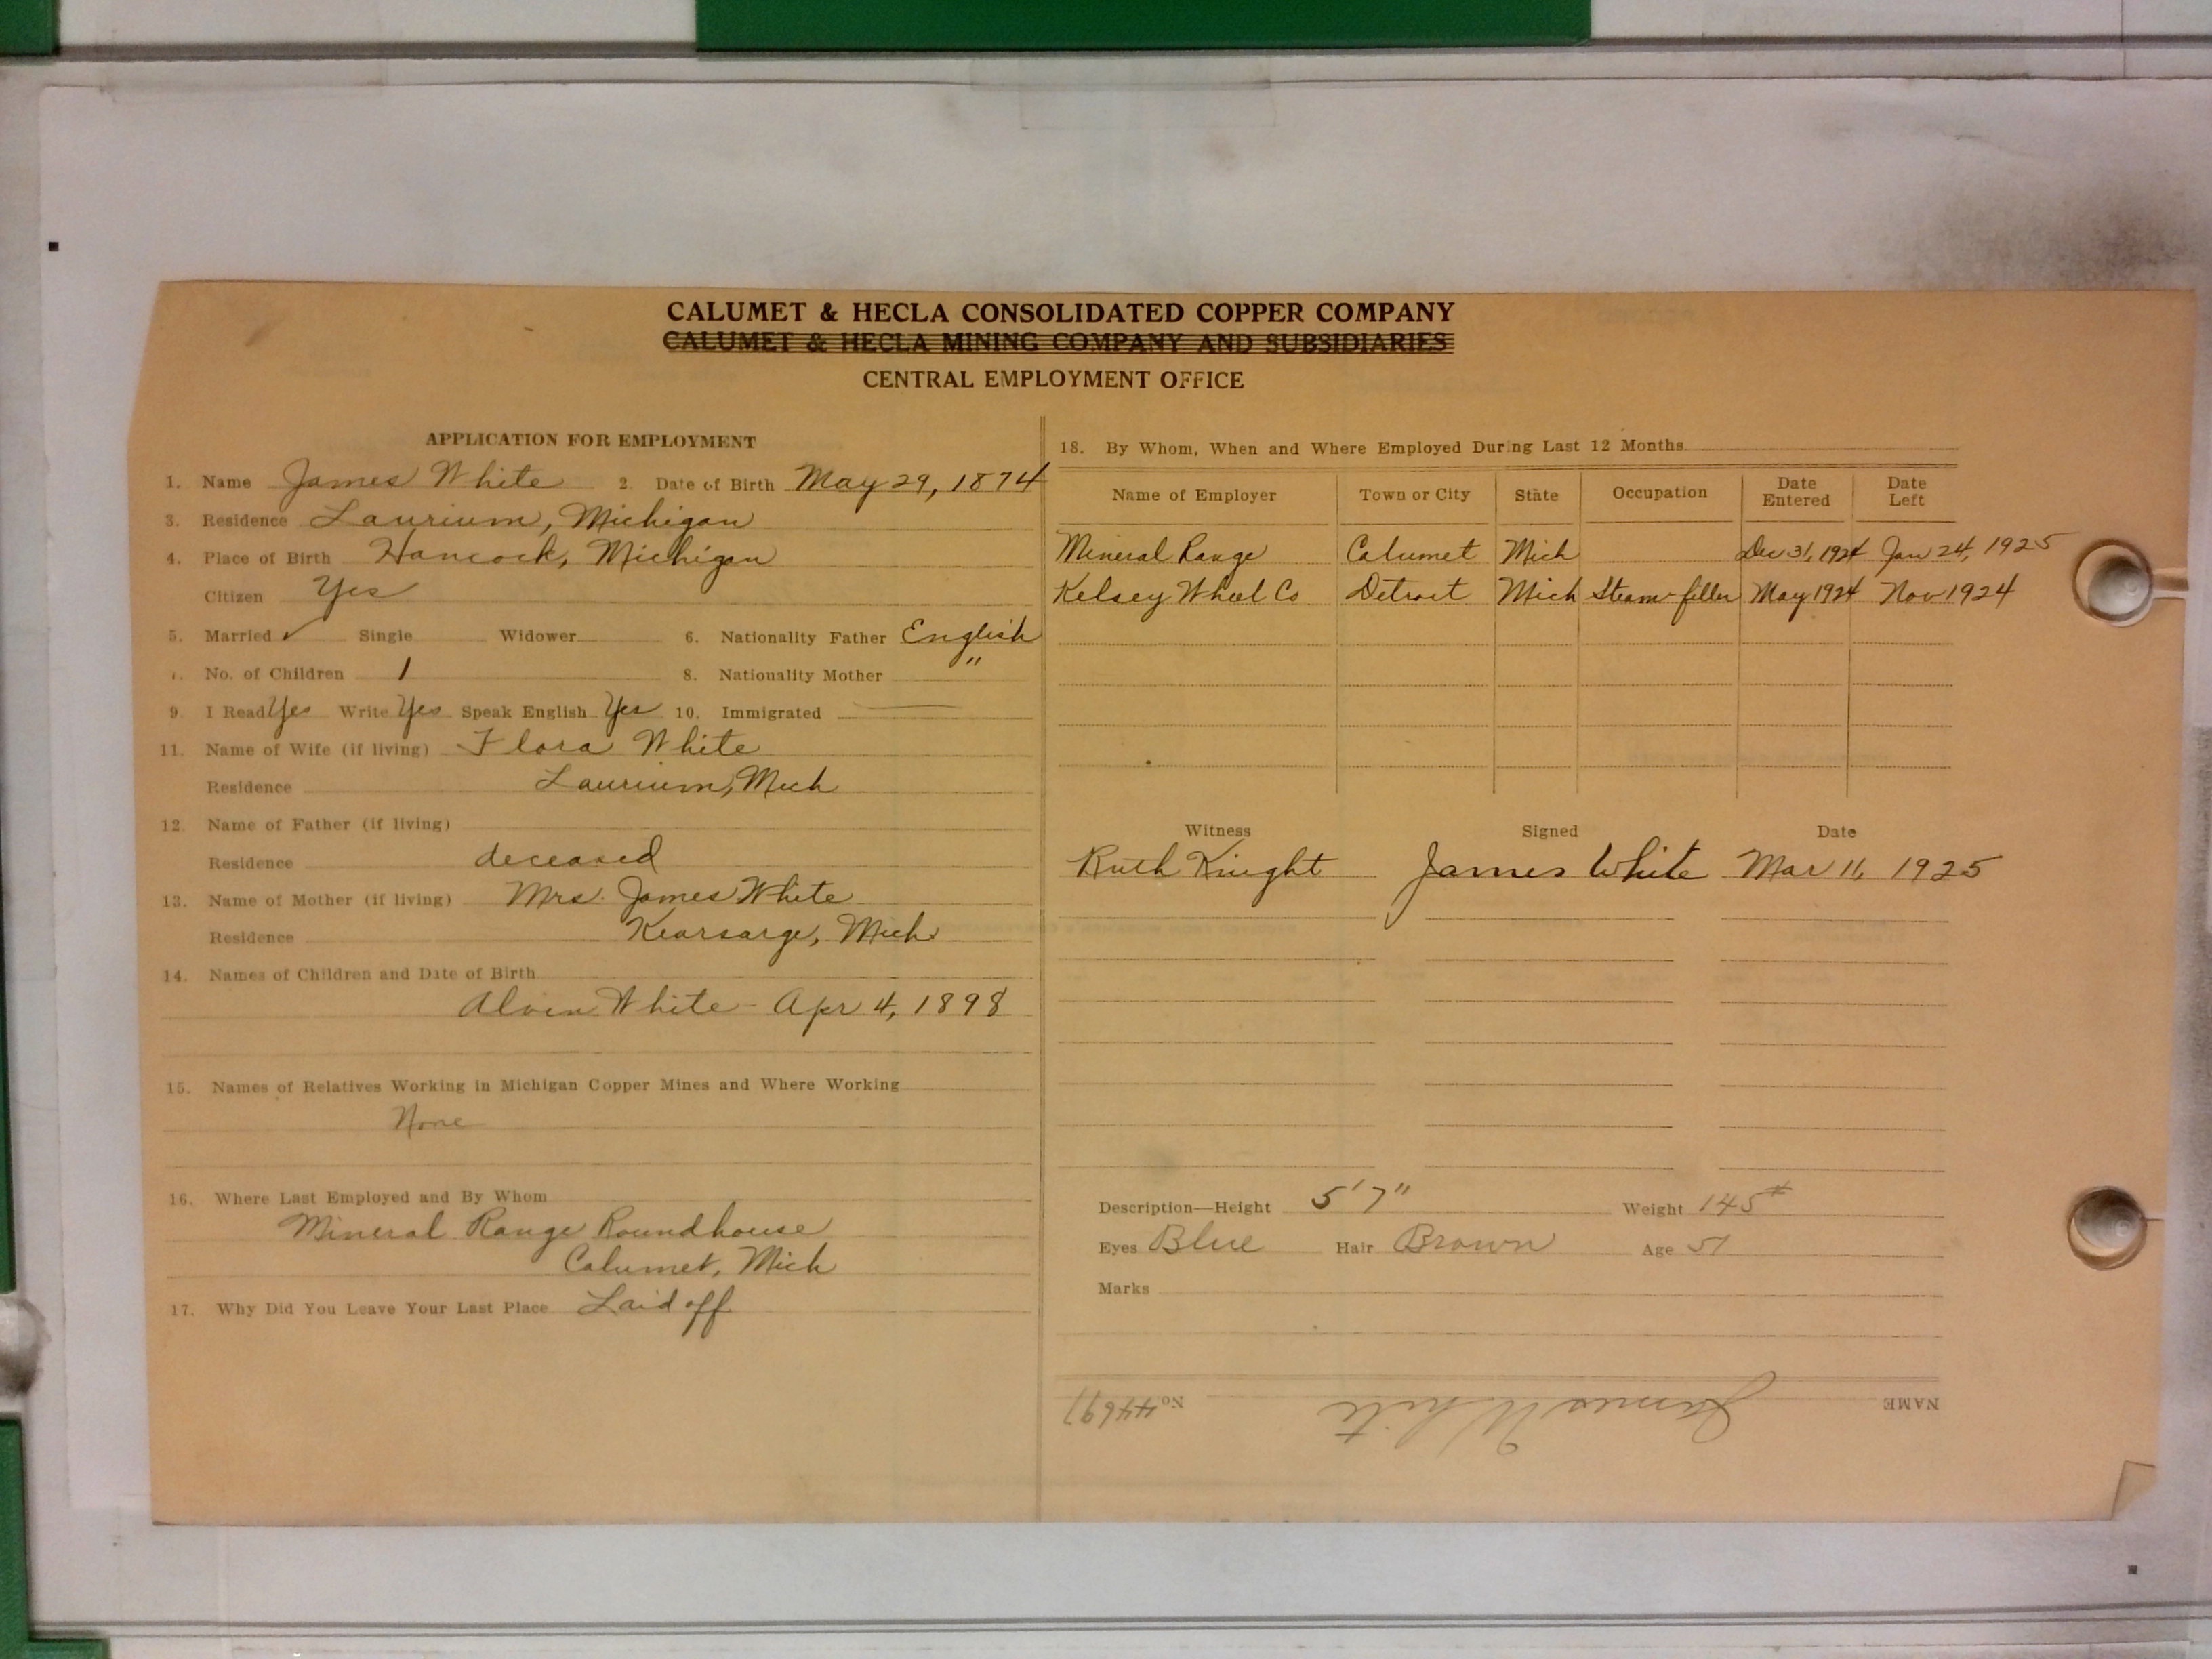 CALUMET & HECLA CONSOLIDATED COPPER COMPANY
CALUMET & HECLA MINING COMPANY AND SUBSIDIARIES
CENTRAL EMPLOYMENT OFFICE
APPLICATION FOR EMPLOYMENT
1. Name James White 2. Date of Birth May 29, 1874
3. Residence Laurium, Michigan
4. Place of Birth Hancock, Michigan
Citizen Yes
5. Married ✓ Single Widower 6. Nationality Father English
No. of Children 1 8. Nationality Mother "
9. I Read Yes Write Yes Speak English Yes 10. Immigrated —
11. Name of Wife (if living) Flora White
Residence Laurium, Mich
12. Name of Father (if living)
Residence deceased
13. Name of Mother (if living) Mrs. James White
Residence Kearsarge, Mich
14. Names of Children and Date of Birth
Alvin White - Apr 4, 1898
15. Names of Relatives Working in Michigan Copper Mines and Where Working
None
16. Where Last Employed and By Whom
Mineral Range Roundhouse
Calumet, Mich
17. Why Did You Leave Your Last Place Laid off
18. By Whom, When and Where Employed During Last 12 Months
Name of Employer Town or City State Occupation Date Entered Date Left
Mineral Range Calumet Mich Dec 31, 1924 Jan 24, 1925
Kelsey Wheel Co Detroit Mich Steam-fitter May 1924 Nov 1924
Witness Signed Date
Ruth Knight James White Mar 11, 1925
Description—Height 5'7" Weight 145#
Eyes Blue Hair Brown Age 51
Marks
NAME James White No. 44697